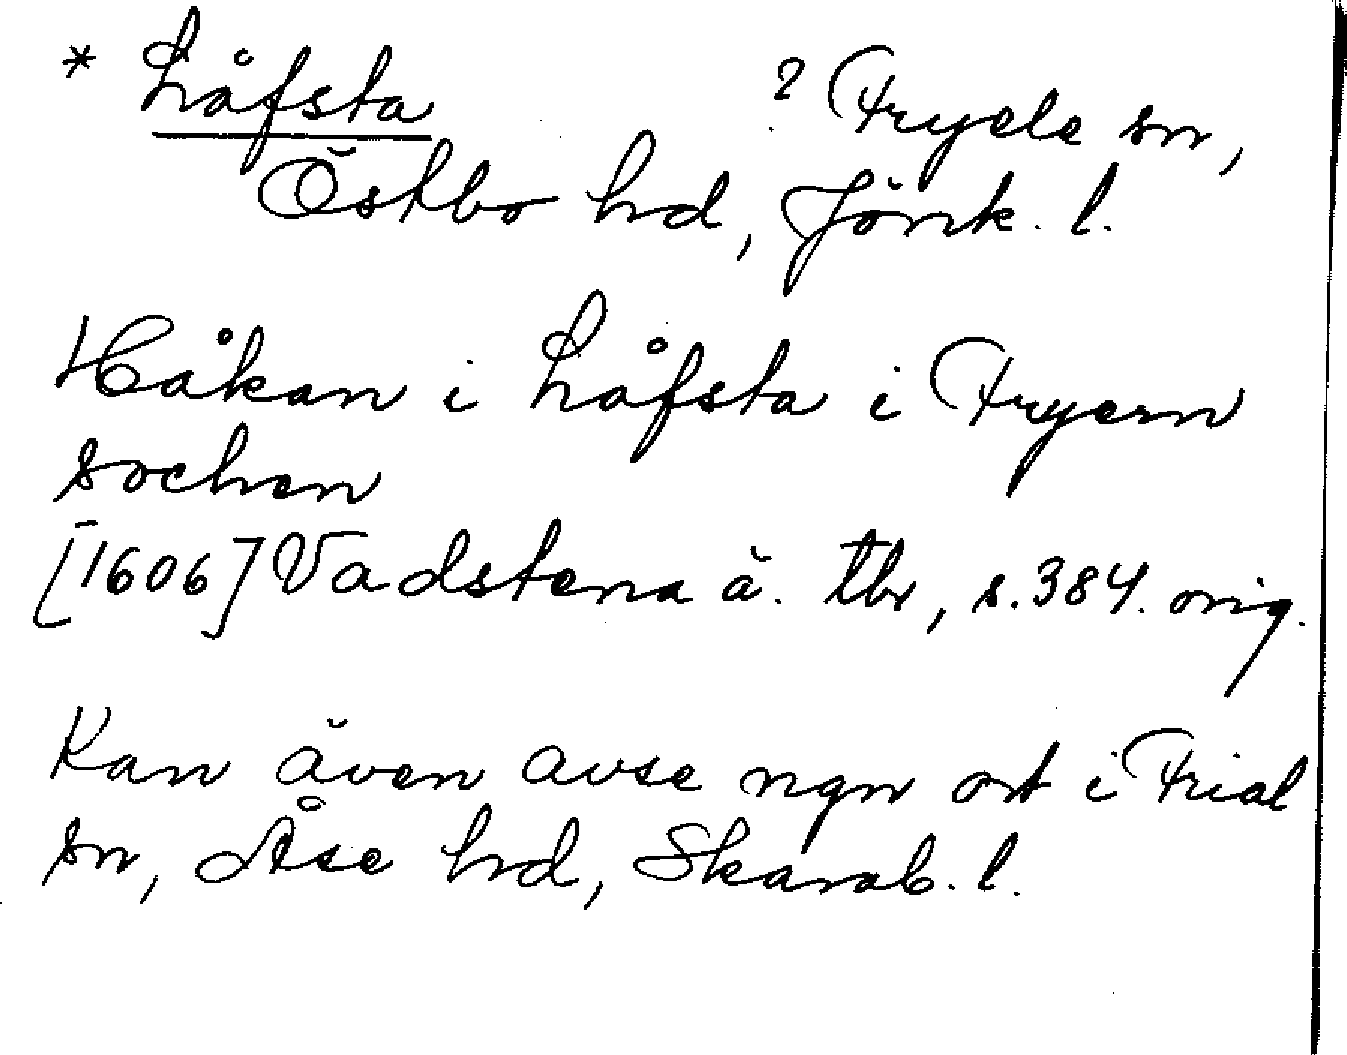 * Låfsta ? Fryele sn,
Östbo hd, Jönk. l.
Håkan i Låfsta i Fryern
sochen
[1606] Vadstena ä. tbr, s. 384. orig.
Kan även avse ngn ort i Friel
sn, Åse hd, Skarab. l.